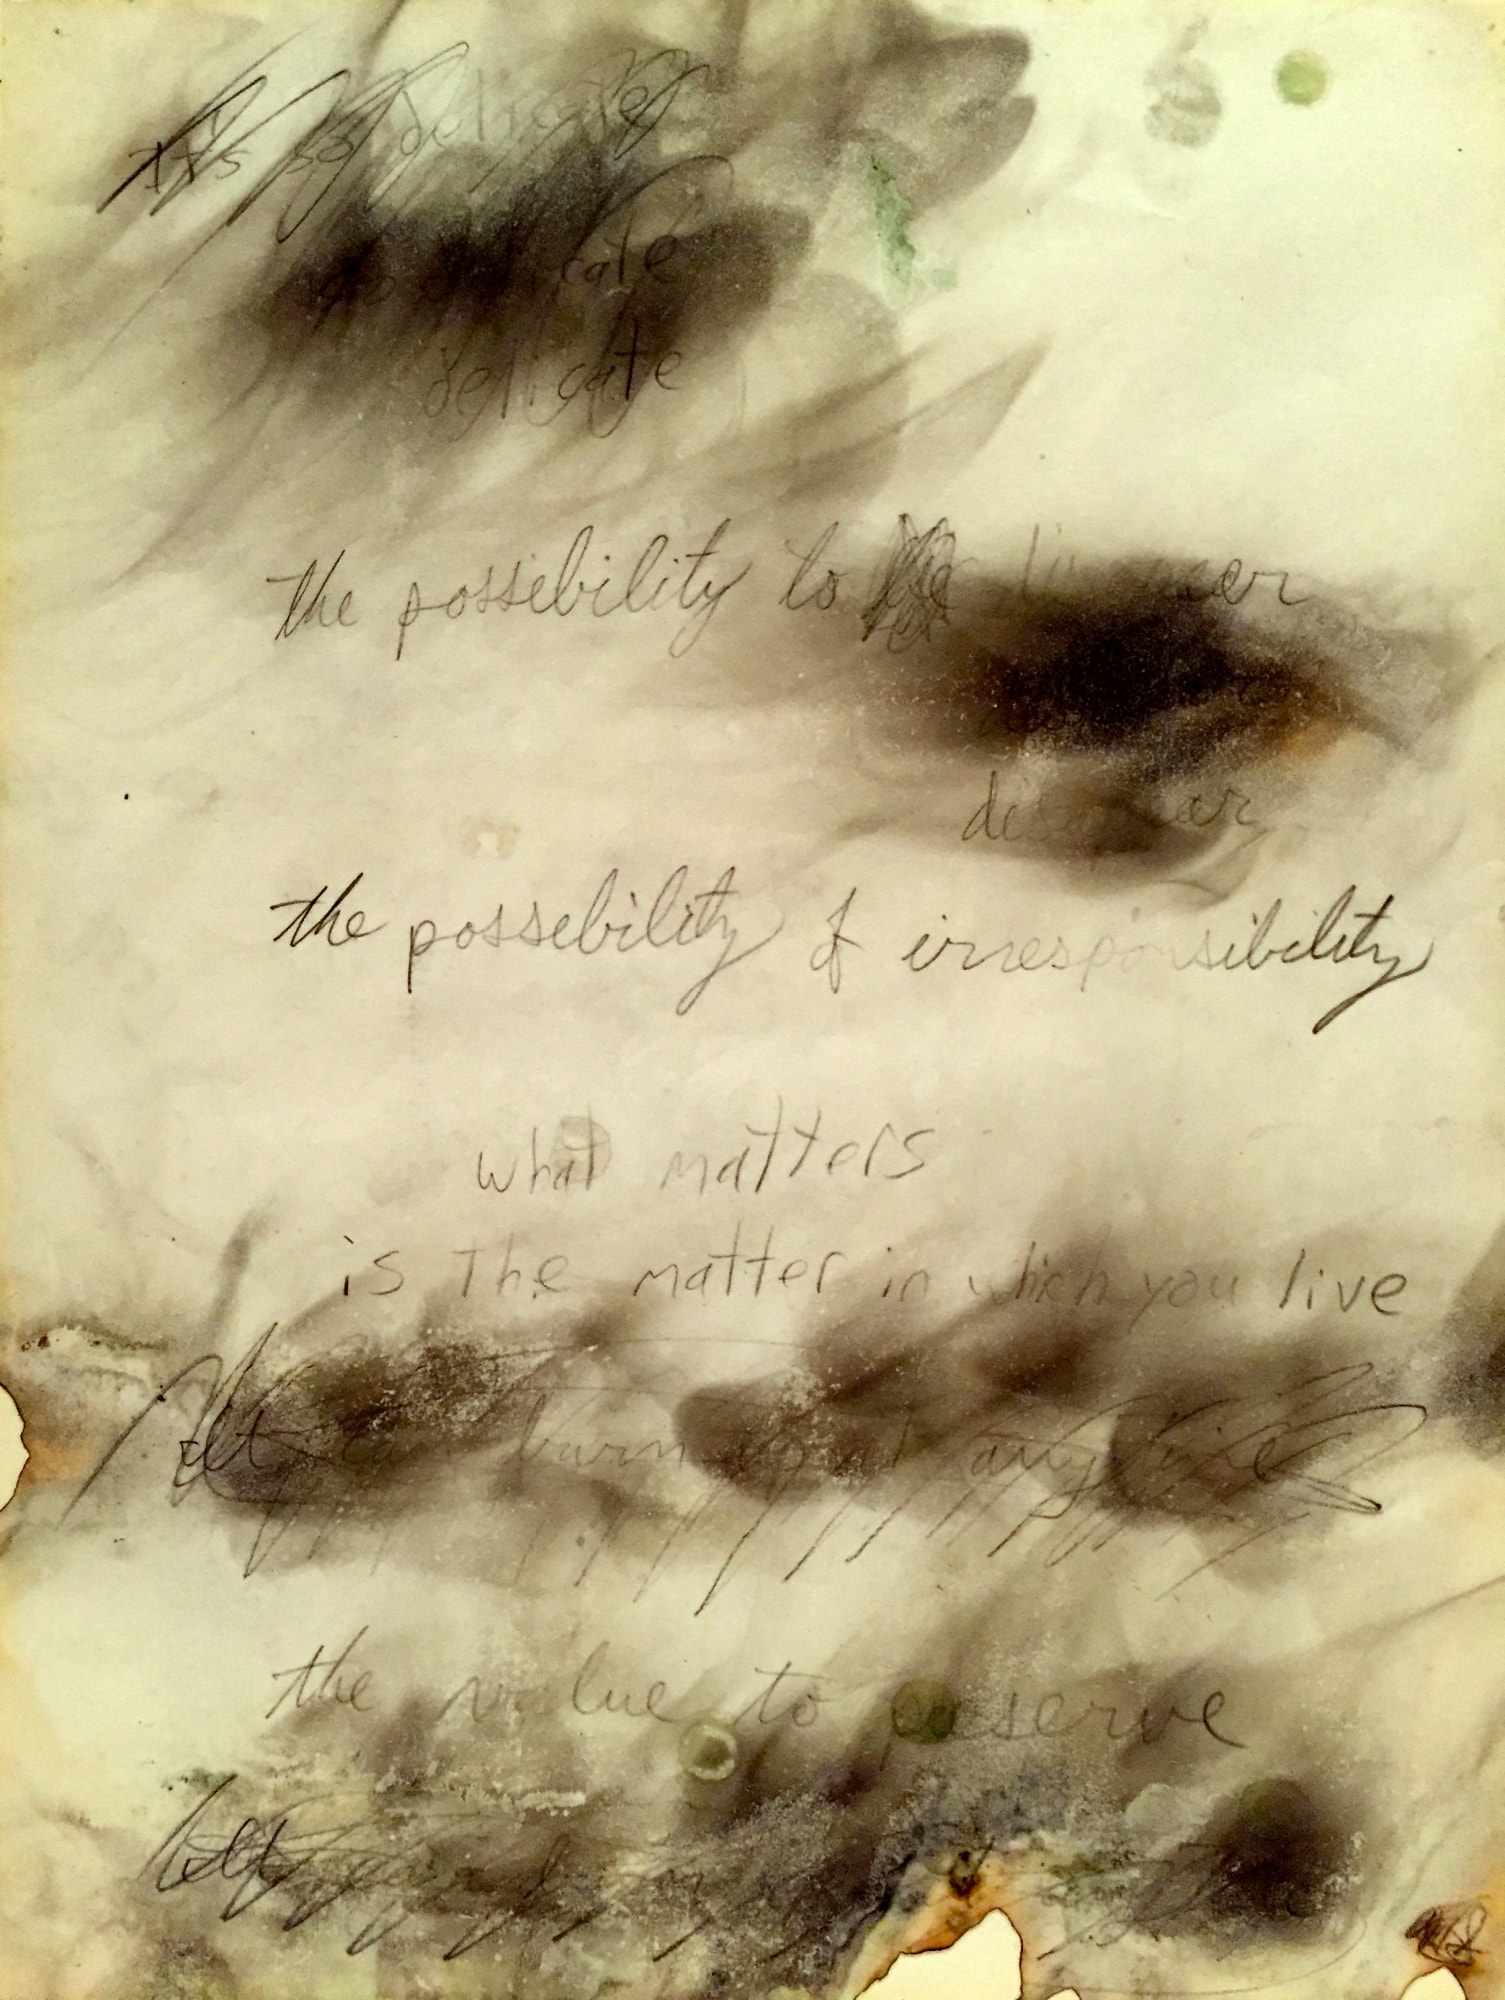 It's so delicate
so delicate
delicate
the possebility to disappear
disappear
the possebility of irresponsibility
what matters
is the matter in which you live
it can burn up at any time
the value to preserve